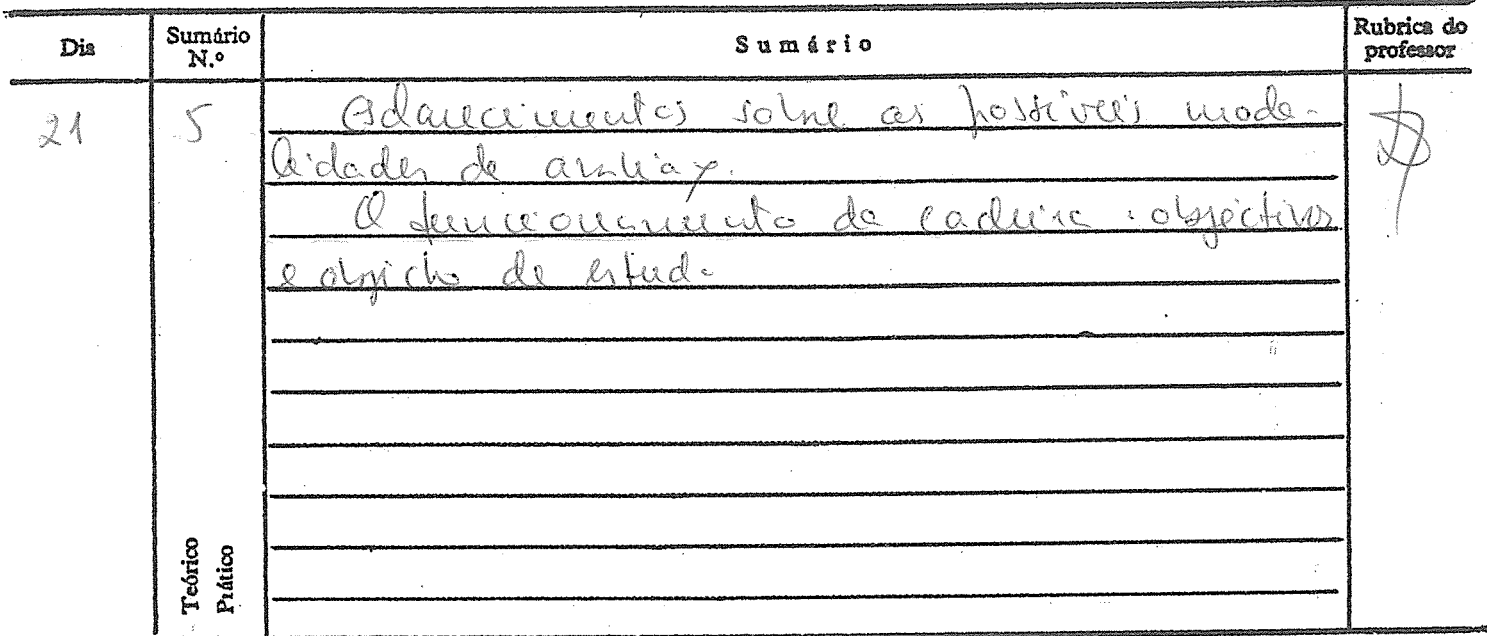 Dia Sumário N.º Sumário Rubrica do professor
21 5 Esclarecimentos sobre as possíveis moda-
lidades de avaliação.
O funcionamento da cadeira: objectivos
e objecto de estudo
Teórico
Prático